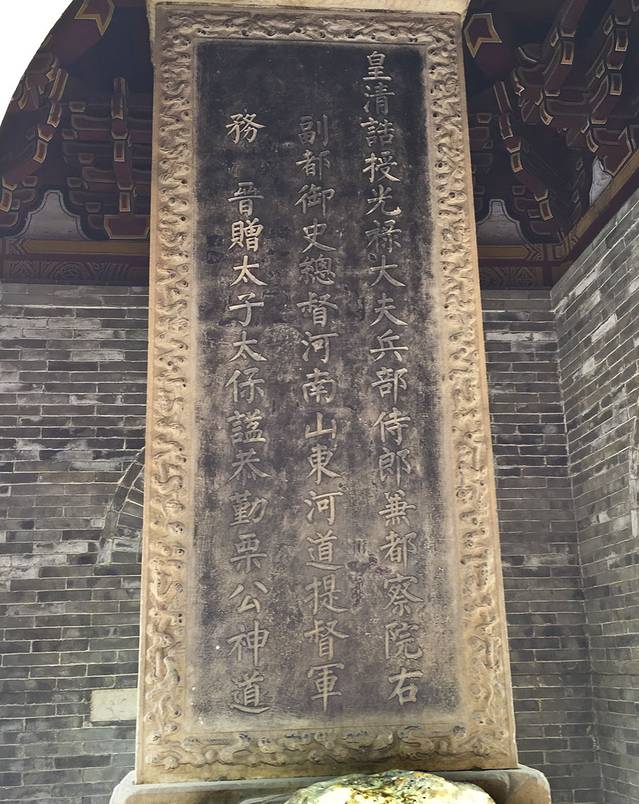 皇清誥授光祿大夫兵部侍郎兼都察院右
副都御史總督河南山東河道提督軍
務 晉贈太子太保諡恭勤栗公神道